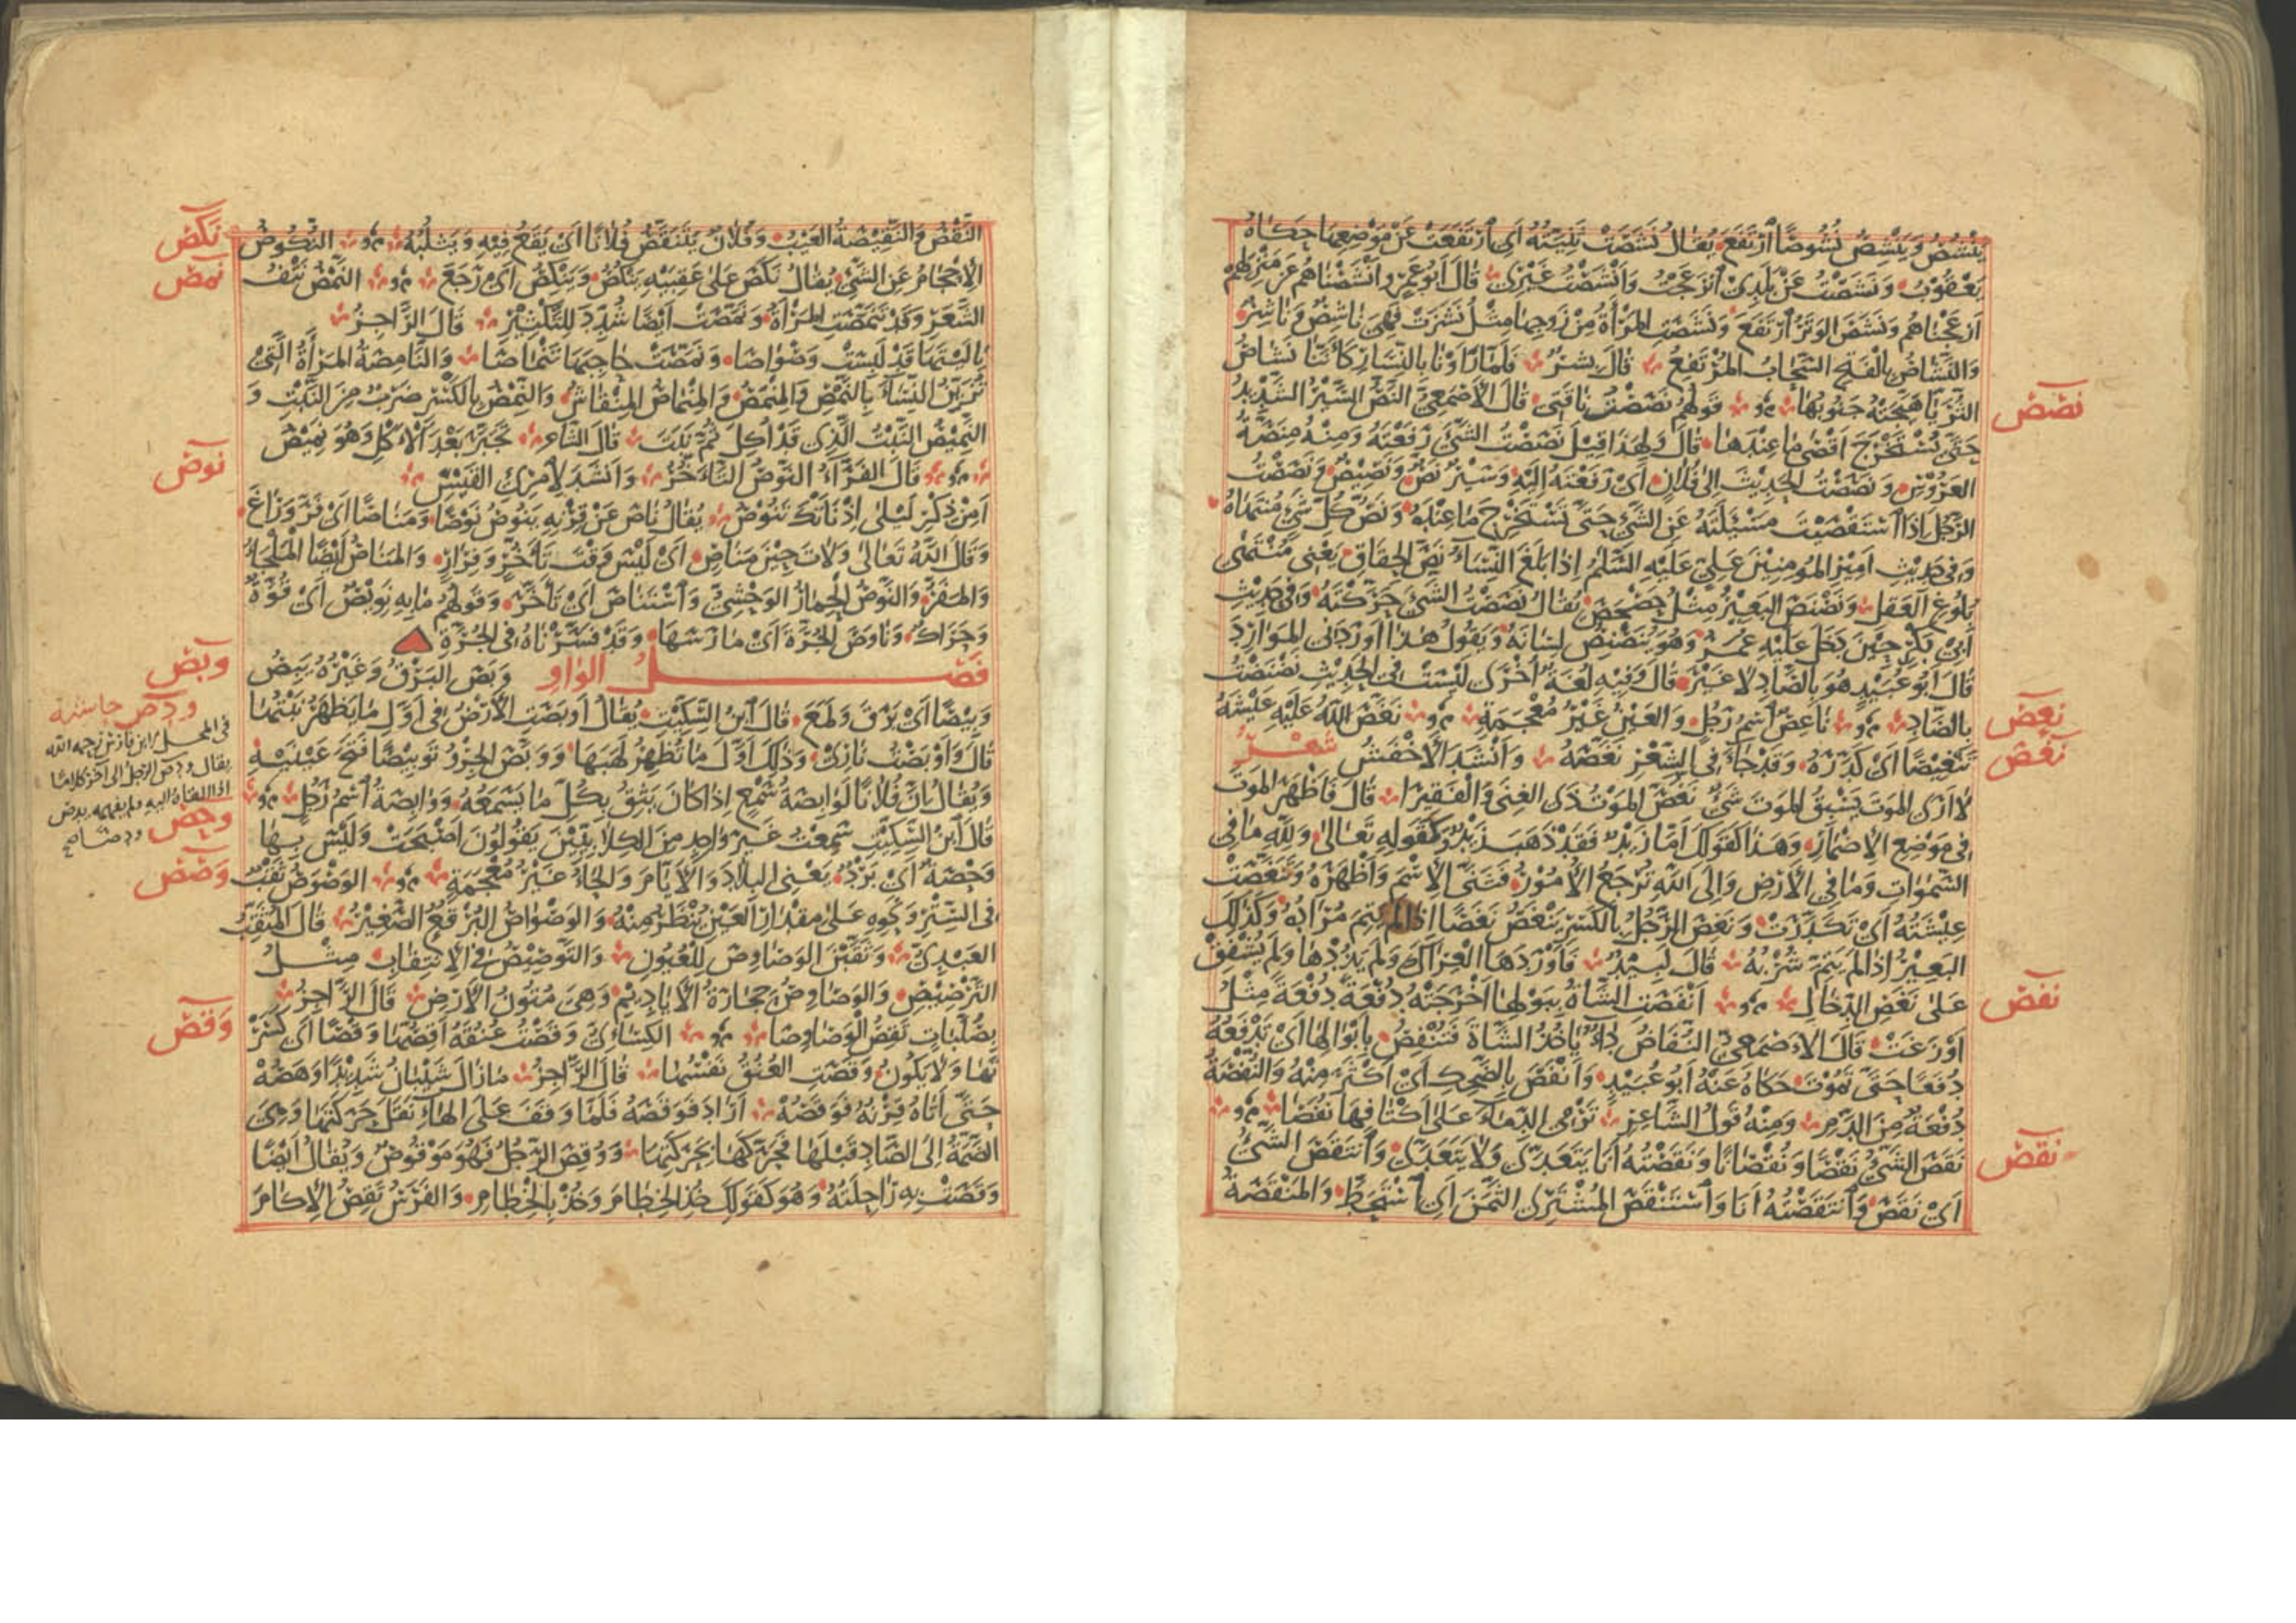 يَنْشُصُ وَيَنْشِصُ نُشُوصًا ارْتَفَعَ يُقالُ نَشَصَتْ ثَنِيَّتُهُ أي ارْتَفَعَتْ عَنْ مَوْضِعِهَا حَكاهُ
يَعْقُوبُ وَنَشَصْتُ عَنْ بَلَدِيْ انْزَعَجْتُ وَأَنْشَصْتُ غَيْرِيْ قالَ أَبُو عَمْرٍو أَنْشَصْناهُمْ عَنْ مَنْزِلِهِمْ
أَزْعَجْناهُمْ وَنَشَصَ الوَتَرُ ارْتَفَعَ وَنَشَصَتِ المَرْأَةُ مِنْ زَوْجِها مِثْلُ نَشَزَتْ فَهِيَ ناشِصٌ وَناشِزٌ
وَالنَّشاصُ بِالفَتْحِ السَّحابُ المُرْتَفِعُ قالَ بِشْرٌ فَلَمَّا رَأَوْنا بِالنِّسارِ كَأَنَّنا نَشاصُ
الثُّرَيَّا هَيَّجَتْهُ جَنُوبُها قَوْلُهُمْ نَصَصْتُ ناقَتِي قالَ الأَصْمَعِيُّ النَّصُّ السَّيْرُ الشَّدِيدُ
حَتَّى يُسْتَخْرَجَ أَقْصَى ما عِنْدَها قالَ وَلِهَذا قِيلَ نَصَصْتُ الشَّيْءَ رَفَعْتُهُ وَمِنْهُ مِنَصَّةُ
العَرُوْسِ وَنَصَصْتُ الحَدِيْثَ إِلَى فُلانٍ أَيْ رَفَعْتُهُ إِلَيْهِ وَسَيْرٌ نَصٌّ وَنَصِيْصٌ وَنَصَصْتُ
الرَّجُلَ إِذَا اسْتَقْصَيْتَ مَسْئَلَتَهُ عَنِ الشَّيْءِ حَتَّى تَسْتَخْرِجَ ما عِنْدَهُ وَنَصُّ كُلِّ شَيْءٍ مُنْتَهاهُ
وَفي حَدِيْثِ أَمِيْرِ المُؤْمِنِيْنَ عَلِيٍّ عَلَيْهِ السَّلَمُ إِذا بَلَغَ النِّساءُ نَصَّ الحِقاقِ يَعْنِي مُنْتَهَى
بُلُوغِ العَقْلِ وَنَصْنَصَ البَعِيْرُ مِثْلُ حَصْحَصَ يُقالُ نَصَصْتُ الشَّيْءَ حَرَّكْتُهُ وَفي حَدِيْثِ
أَبِيْ بَكْرٍ حِيْنَ دَخَلَ عَلَيْهِ عُمَرُ وَهُوَ يُنَصْنِصُ لِسانَهُ وَيَقُولُ هَذا أَوْرَدَنِي المَوارِدَ
قالَ أَبُو عُبَيْدٍ هُوَ بِالصَّادِ لا غَيْرُ قالَ وَفِيهِ لُغَةٌ أُخْرَى لَيْسَتْ في الحَدِيْثِ نَضْنَضْتُ
بِالضَّادِ ناعِصٌ اسْمُ رَجُلٍ وَالعَيْنُ غَيْرُ مُعْجَمَةٍ نَغَّصَ اللهُ عَلَيْهِ عَيْشَهُ
تَنْغِيْصًا أَيْ كَدَّرَهُ وَقَدْ جاءَ في الشِّعْرِ نَغَّصَهُ وَأَنْشَدَ الأَخْفَشُ شعر
لا أَرَى المَوْتَ يَسْبِقُ المَوْتَ شَيْءٌ نَغَّصَ المَوْتُ ذَى الغِنَى وَالفَقِيْرَا قالَ فَأَظْهَرَ المَوْتَ
في مَوْضِعِ الإِضْمارِ وَهَذا كَقَوْلِكَ أَمَّا زَيْدٌ فَقَدْ ذَهَبَ زَيْدٌ وَكَقَوْلِهِ تَعالى وَلِلّهِ ما في
السَّمَواتِ وَمَا في الأَرْضِ وَإِلَى اللهِ تُرْجَعُ الأُمُوْرُ فَثَنَّى الاسْمَ وَأَظْهَرَهُ وَتَنَغَّصَتْ
عِيْشَتُهُ أَيْ تَكَدَّرَتْ وَنَغِصَ الرَّجُلُ بِالكَسْرِ يَنْغَصُ نَغَصًا إِذا لَمْ يَتِمَّ مُرَادُهُ وَكَذلِكَ
البَعِيْرُ إِذا لَمْ يَتِمَّ شُرْبُهُ قالَ لَبِيْدٌ فَأَوْرَدَها العِراكَ وَلَمْ يَذُدْها وَلَمْ يُشْفِقْ
عَلى نَغَصِ الدِّخالِ أَنْفَصَتِ الشَّاةُ بِبَوْلِها أَخْرَجَتْهُ دُفْعَةً دُفْعَةً مِثْلُ
أَوْزَعَتْ قَالَ الأَصْمَعِيُّ النُّفاصُ داءٌ يَأْخُذُ الشَّاةَ فَتُنْفِصُ بِأَبْوَالِها أَيْ تَدْفَعُهُ
دُفَعًا حَتَّى تَمُوْتَ حَكاهُ عَنْهُ أَبُو عُبَيْدٍ وَأَنْفَصَ بِالضَّحِكِ أَيْ أَكْثَرَ مِنْهُ وَالنُّفْصَةُ
دُفْعَةٌ مِنَ الدَّمِ وَمِنْهُ قَوْلُ الشَّاعِرِ تَرْمِي الدِّمَاءَ عَلى أَكْتافِها نُفَصَا
نَقَصَ الشَّيْءُ نَقْصًا وَنُقْصَانًا وَنَقَصْتُهُ أَنَا يَتَعَدَّى وَلا يَتَعَدَّى وَانْتَقَصَ الشَّيْءُ
أَيْ نَقَصَ وَانْتَقَصْتُهُ أَنَا وَاسْتَنْقَصَ المُشْتَرِي الثَّمَنَ أَيْ اسْتَحَطَّ وَالمَنْقَصَةُ
نصص
نعص
نغص
نفص
نقص
النَّقْصُ وَالنَّقِيْصَةُ العَيْبُ وَفُلانٌ يَنْتَقِصُ فُلانًا أَيْ يَقَعُ فِيْهِ وَيَثْلُبُهُ النُّكُوصُ
الإِحْجَامُ عَنِ الشَّيْءِ يُقالُ نَكَصَ عَلى عَقِبَيْهِ يَنْكُصُ وَيَنْكِصُ أَيْ رَجَعَ النَّمْصُ نَتْفُ
الشَّعَرِ وَقَدْ تَنَمَّصَتِ المَرْأَةُ وَنَمَّصَتْ أَيْضًا شُدِّدَ لِلتَّكْثِيْرِ قالَ الرَّاجِزُ
يا لَيْتَها قَدْ لَبِسَتْ وَصْوَاصَا وَنَمَّصَتْ حاجِبَها تَنْمَاصَا وَالنَّامِصَةُ المَرْأَةُ الَّتِيْ
تُزَيِّنُ النِّسَاءَ بِالنَّمْصِ وَالمِنْمَصُ وَالمِنْمَاصُ المِنْقاشُ وَالنِّمْصُ بِالكَسْرِ ضَرْبٌ مِنَ النَّبْتِ وَ
النَّمِيْصُ النَّبْتُ الَّذِي قَدْ أُكِلَ ثُمَّ نَبَتَ قالَ الشاعر تَجَبَّرَ بَعْدَ الأَكْلِ وَهُوَ نَمِيْصُ
قَالَ الفَرَّاءُ النَّوْصُ التَّأَخُّرُ وَأَنْشَدَ لِامْرِئِ القَيْسِ
أَمِنْ ذِكْرِ لَيْلى إِذْ نَأَتْكَ تَنُوْصُ يُقالُ نَاصَ عَنْ قِرْنِهِ يَنُوْصُ نَوْصًا وَمَنَاصًا أَيْ فَرَّ وَرَاغَ
وَقَالَ اللهُ تَعَالى وَلَاتَ حِيْنَ مَنَاصٍ أَيْ لَيْسَ وَقْتَ تَأَخُّرٍ وَفِرَارٍ وَالمَنَاصُ أَيْضًا المَلْجَأُ
وَالمَفَرُّ وَالنَّوْصُ الحِمَارُ الوَحْشِيُّ وَاسْتَنَاصَ أَيْ تَأَخَّرَ وَقَوْلُهُمْ مَا بِهِ نَوِيْصٌ أَيْ قُوَّةٌ
وَحَرَاكٌ وَنَاوَصَ الجُرَّةَ أَيْ مَارَسَهَا وَقَدْ فَسَّرْنَاهُ في الجُرَّةِ
فَصْلُ الوَاوِ وَبَصَ البَرْقُ وَغَيْرُهُ يَبِصُ
وَبِيْصًا أَيْ بَرَقَ وَلَمَعَ قالَ ابْنُ السِّكِّيْتِ يُقالُ أَوْبَصَتِ الأَرْضُ في أَوَّلِ مَا يَظْهَرُ نَبْتُهَا
قالَ وَأَوْبَصَتْ نارِيْ وَذَلِكَ أَوَّلَ ما تُظْهِرُ لَهَبَهَا وَوَبَّصَ الجِرْوُ تَوْبِيْصًا فَتَحَ عَيْنَيْهِ
وَيُقالُ إِنَّ فُلانًا لَوَابِصَةُ سَمْعٍ إِذا كانَ يَثِقُ بِكُلِّ مَا يَسْمَعُهُ وَوَابِصَةُ اسْمُ رَجُلٍ
قالَ ابْنُ السِّكِّيْتِ سَمِعْتُ غَيْرَ وَاحِدٍ مِنَ الكِلَابِيِّيْنَ يَقُولُونَ أَصْبَحَتْ وَلَيْسَ بِهَا
وَحْصَةٌ أَيْ بَرْدٌ يَعْنِي البِلادَ وَالأَيَّامَ وَالحَاءُ غَيْرُ مُعْجَمَةٍ الوَصْوَصُ ثَقْبٌ
في السِّتْرِ وَنَحْوِهِ عَلى مِقْدَارِ العَيْنِ يُنْظَرُ مِنْهُ وَالوَصْوَاصُ البُرْقُعُ الصَّغِيْرُ قالَ المُثَقِّبُ
العَبْدِيُّ وَثَقَّبْنَ الوَصَاوِصَ لِلْعُيُونِ وَالتَّوْصِيْصُ في الانْتِقَابِ مِثْلُ
التَّرْصِيْصِ وَالوَصَاوِصُ حِجَارَةُ الأَيَادِيْمِ وَهِيَ مُتُوْنُ الأَرْضِ قَالَ الرَّاجِزُ
بِصُلَّبَاتٍ تَقِصُ الوَصَاوِصَا الكِسَائِيُّ وَقَصْتُ عُنُقَهُ أَقِصُهَا وَقْصًا أَيْ كَسَرْ
تُهَا وَلا يَكُونُ وَقَصَتِ العُنُقُ نَفْسُهَا قالَ الرَّاجِزُ مَا زَالَ شَيْبَانُ شَدِيْدًا وَهَصُهْ
حَتَّى أَتَاهُ قِرْنُهُ فَوَقَصُهْ أَرَادَ فَوَقَصَهُ فَلَمَّا وَقَفَ عَلَى الهَاءِ نَقَلَ حَرَكَتَهَا وَهِيَ
الضَّمَّةُ إِلَى الصَّادِ قَبْلَهَا فَحَرَّكَهَا بِحَرَكَتِهَا وَوُقِصَ الرَّجُلُ فَهُوَ مَوْقُوصٌ وَيُقالُ أَيْضًا
وَقَصَتْ بِهِ رَاحِلَتُهُ وَهُوَ كَقَوْلِكَ خُذِ الخِطَامَ وَخُذْ بِالخِطَامِ وَالفَرَسُ تَقِصُ الإِكَامَ
نكص
نمص
نوص
وبص
ودص حاشية
في المجمل ابن فارس رحمه الله
يقال ودص الرجل الى آخر كلاما
اذا القاه اليه ولم يفهمه يدص
وحص
وصص
وقص